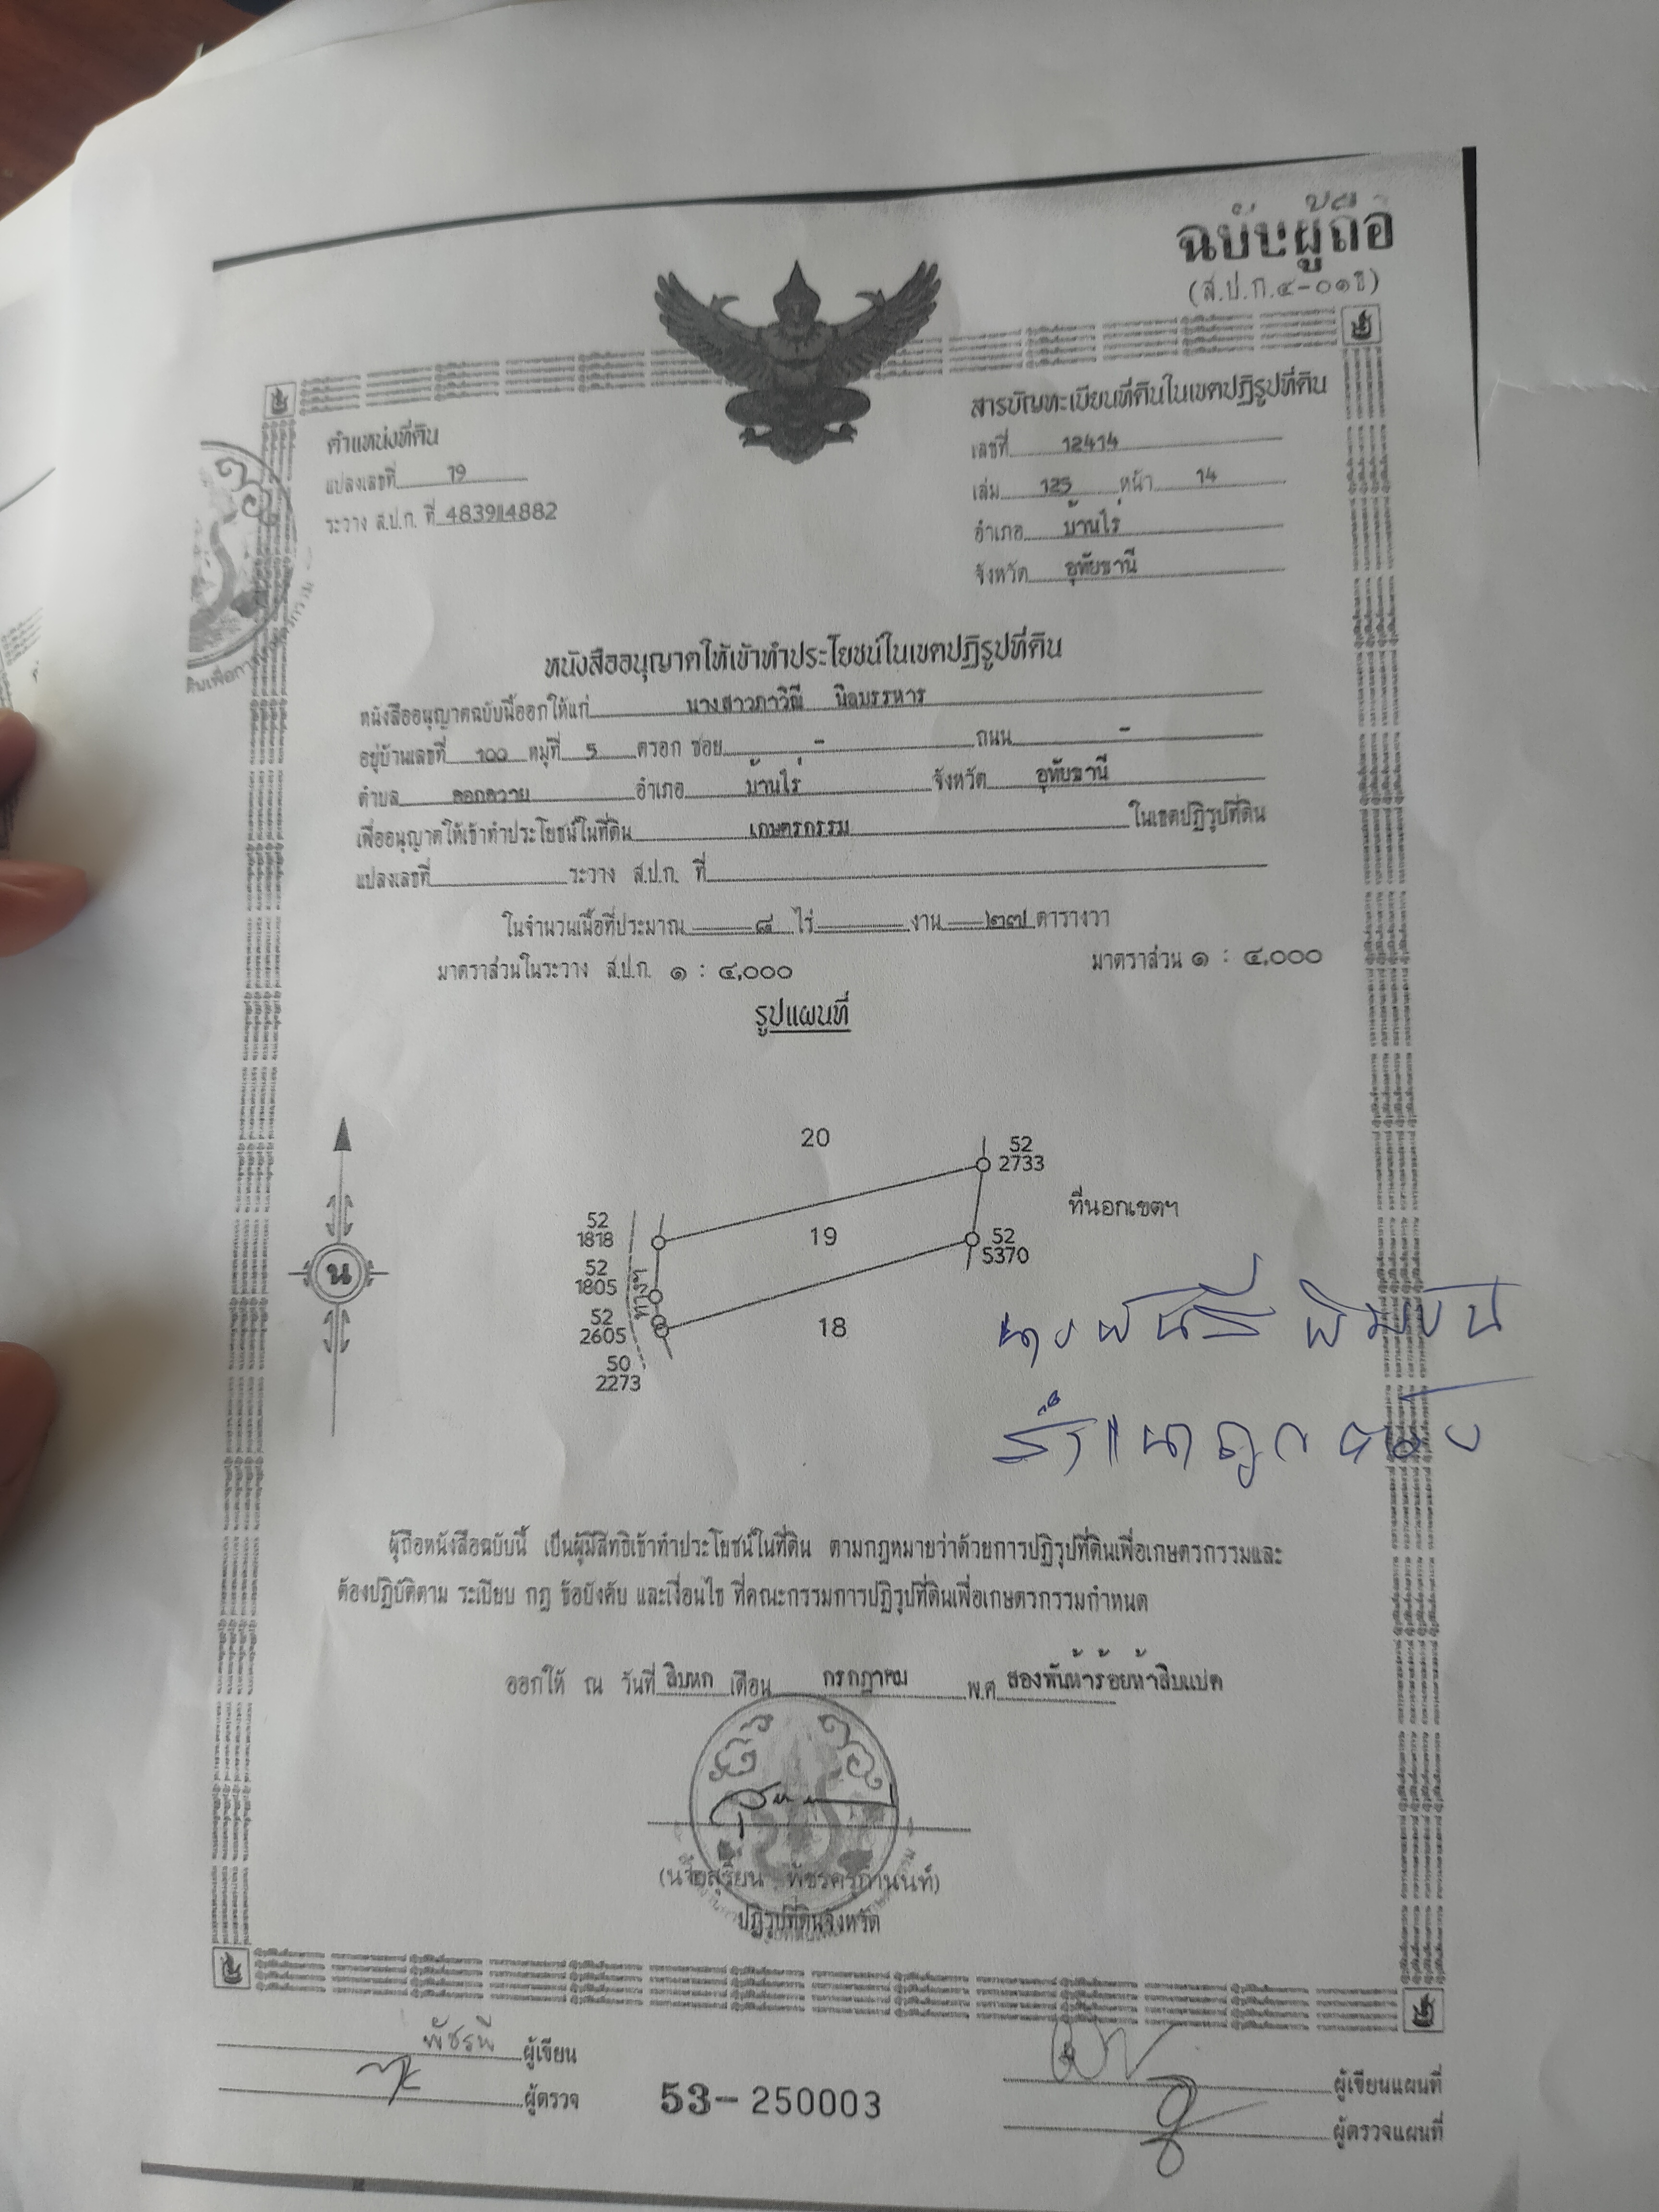 ฉบับผู้ถือ
(ส.ป.ก.๔-๐๑ข)
ตำแหน่งที่ดิน
แปลงเลขที่ 19
ระวาง ส.ป.ก. ที่ 4839II4882
สารบัญทะเบียนที่ดินในเขตปฏิรูปที่ดิน
เลขที่ 12414
เล่ม 125 หน้า 14
อำเภอ บ้านไร่
จังหวัด อุทัยธานี
หนังสืออนุญาตให้เข้าทำประโยชน์ในเขตปฏิรูปที่ดิน
หนังสืออนุญาตฉบับนี้ออกให้แก่ นางสาวภาวิณี นิลบรรหาร
อยู่บ้านเลขที่ 100 หมู่ที่ 5 ตรอก ซอย - ถนน -
ตำบล คอกควาย อำเภอ บ้านไร่ จังหวัด อุทัยธานี
เพื่ออนุญาตให้เข้าทำประโยชน์ในที่ดิน เกษตรกรรม ในเขตปฏิรูปที่ดิน
แปลงเลขที่ ระวาง ส.ป.ก. ที่
ในจำนวนเนื้อที่ประมาณ ๘ ไร่ งาน ๒๗ ตารางวา
มาตราส่วนในระวาง ส.ป.ก. ๑ : ๔,๐๐๐ มาตราส่วน ๑ : ๔,๐๐๐
รูปแผนที่
20
52
2733
ที่นอกเขตฯ
52
1818
19
52
5370
52
1805
ทางฯ
52
2605
18
50
2273
น
ผู้ถือหนังสือฉบับนี้ เป็นผู้มีสิทธิเข้าทำประโยชน์ในที่ดิน ตามกฎหมายว่าด้วยการปฏิรูปที่ดินเพื่อเกษตรกรรมและ
ต้องปฏิบัติตาม ระเบียบ กฎ ข้อบังคับ และเงื่อนไข ที่คณะกรรมการปฏิรูปที่ดินเพื่อเกษตรกรรมกำหนด
ออกให้ ณ วันที่ สิบหก เดือน กรกฎาคม พ.ศ. สองพันห้าร้อยห้าสิบแปด
ปฏิรูปที่ดินจังหวัด
พัชรพี ผู้เขียน
ผู้ตรวจ
53-250003
ผู้เขียนแผนที่
ผู้ตรวจแผนที่